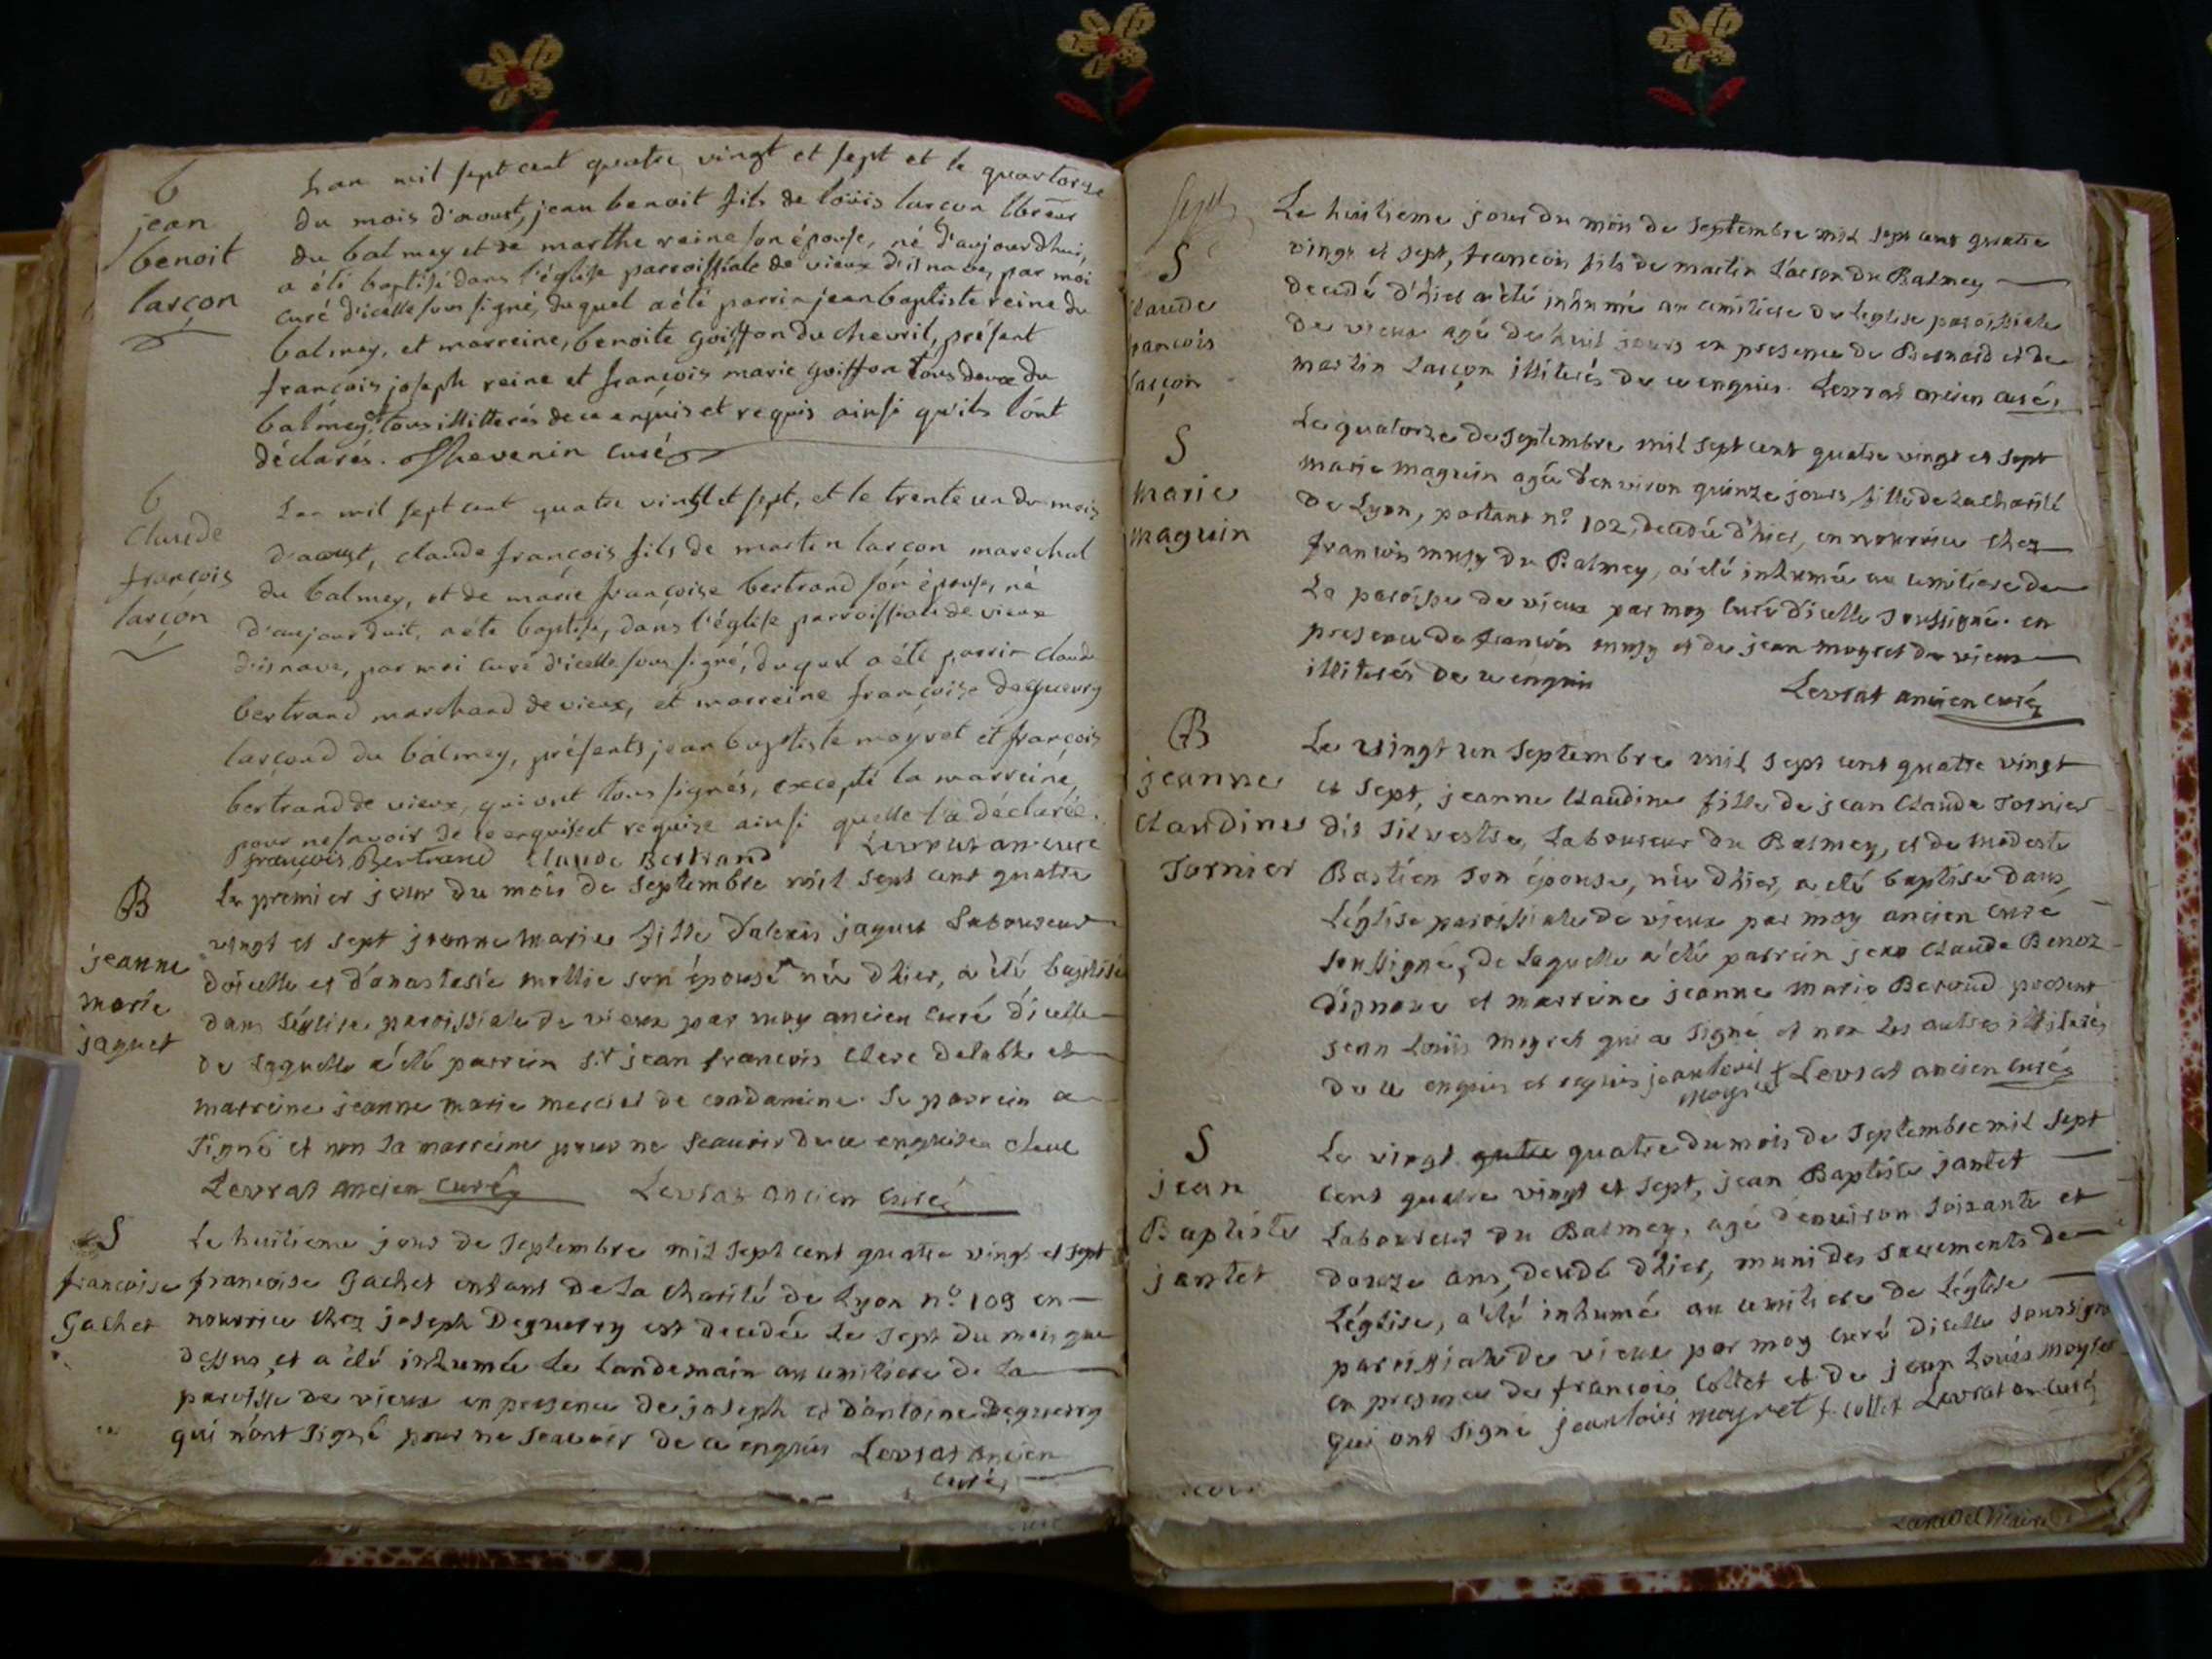 b
jean
benoit
larçon
Lan mil sept cent quatre vingt et sept et le quatorze
du mois d'aoust, jean benoit fils de loüis larçon
du balmey et de marthe reine son épouse, né d'aujourdhui,
a été baptisé dans l'église parroissiale de vieux d'isnave, par moi
curé d'icelle sous signé, duquel a été parrin jean baptiste reine du
balmey, et marreine, benoite goiffon du chevril, présent
françois joseph reine et françois marie goiffon tous deux du
balmey, tous illitterés de ce enquis et requis ainsi qu'ils lont
déclarés. Thevenin curé
b
claude
françois
larçon
Lan mil sept cent quatre vingt et sept, et le trente un du mois
d'aoust, claude françois fils de martin larçon marechal
du balmey, et de marie françoise bertrand son épouse, né
d'aujourduit, a été baptisé, dans l'église parroissiale de vieux
d'isnave, par moi curé d'icelle sous signé, duquel a été parrin claude
bertrand marchand de vieux, et marreine françoise deguerry
larçond du balmey, présents jean baptiste moyret et françois
bertrand de vieux, qui ont tous signés, excepté la marreine,
pour ne savoir de ce enquise et requise ainsi quelle l'a déclarée.
françois Bertrand Claude Bertrand Levrat an curé
B
jeanne
marie
jaquet
Le premier jour du mois de septembre mil sept cent quatre
vingt et sept jeanne marie fille d'alexis jaquet Laboureur
d'oicelle et d'anastasie mollie son épouse née d'hier, a été baptisée
dans l'église paroissiale de vieux par moy ancien curé d'icelle
de Laquelle a été parrein sr jean francois Clerc delable et
marreine jeanne marie merciet de condamine. Le parrein a
signé et non la marreine pour ne scauoir de ce enquise Clerc
Levrat ancien curé Levrat ancien curé
S
francoise
Gachet
Le huitieme jour de septembre mil sept cent quatre vingt et sept
francoise Gachet enfant de la charité de Lyon n.° 109 en
nourrice chez joseph Deguerry est decedée Le sept du mois que
dessus, et a été inhumée Le Landemain au cemitiere de La
paroisse de vieux en presence de joseph et d'antoine Deguerry
qui n'ont signé pour ne scauoir de ce enquis Levrat ancien
curé
S
claude
francois
larçon
Le huitieme jour du mois de septembre mil sept cent quatre
vingt et sept, francois fils de martin Larçon du Balmey
decedé d'hier a été inhumé au cemitiere de leglise paroissiale
de vieux agé de huit jours en presence de Bernard et de
martin Larçon illiterés de ce enquis. Levrat ancien curé
S
marie
maguin
Le quatorze de septembre mil sept cent quatre vingt et sept
marie maguin agée d'environ quinze jours, fille de La charité
de Lyon, portant n.° 102, decedée d'hier, en nourrice chez
francois musy du Balmey, a été inhumée au cemitiere de
La paroisse de vieux par moy curé d'icelle soussigné en
presence de francois musy et de jean moyret de vieux
illiterés de ce enquis
Levrat ancien curé
B
jeanne
Claudine
Tornier
Le vingt un septembre mil sept cent quatre vingt
et sept, jeanne Claudine fille de jean Claude Tornier
dit silvestre, Laboureur du Balmey, et de modeste
Bastien son épouse, née d'hier, a été baptisée dans
L'église paroissiale de vieux par moy ancien curé
soussigné, de Laquelle a été parrein jean Claude Benoz
d'isnave et marreine jeanne marie Beroud present
jean Loüis moyret qui a signé et non Les autres illiterés
de ce enquis et requis jean louis moyret Levrat ancien curé
S
jean
Baptiste
jantet
Le vingt quatre du mois de septembre mil sept
cent quatre vingt et sept, jean Baptiste jantet
Laboureur du Balmey, agé d'environ soixante et
douze ans, decedé d'hier, muni des sacrements de
L'église, a été inhumé au cemitiere de L'église
paroissiale de vieux par moy curé d'icelle soussigné
en presence de francois Collet et de jean Louis moyret
qui ont signé jean louis moyret f. collet Levrat an curé